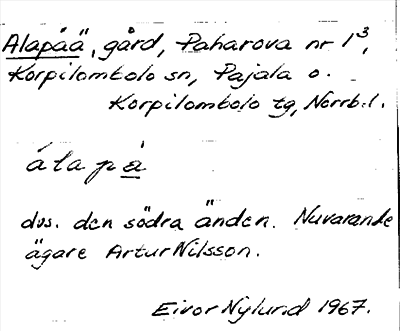 Alapää, gård, Paharova nr 1³,
Korpilombolo sn, Pajala o.
Korpilombolo tg, Norrb. l.
álapà
dvs. den södra änden. Nuvarande
ägare Artur Nilsson.
Eivor Nylund 1967.